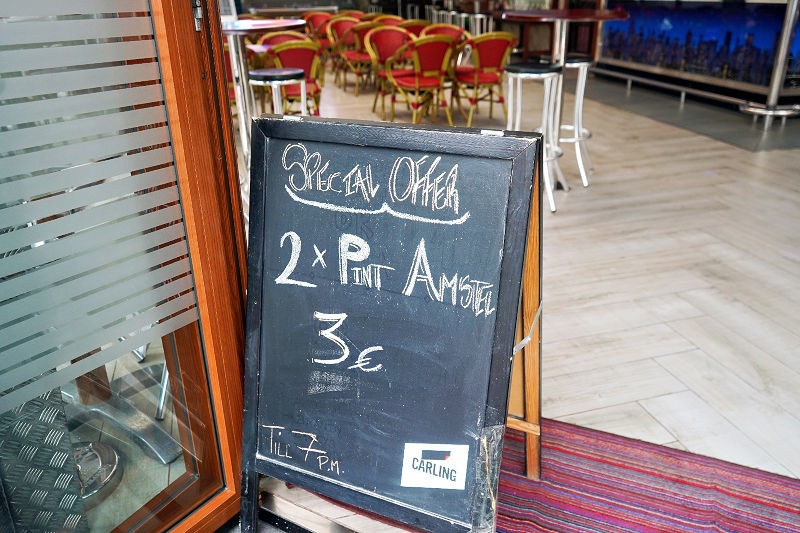 SPECIAL OFFER
2 x PINT AMSTEL
3 €
TILL 7 P.M.
CARLING